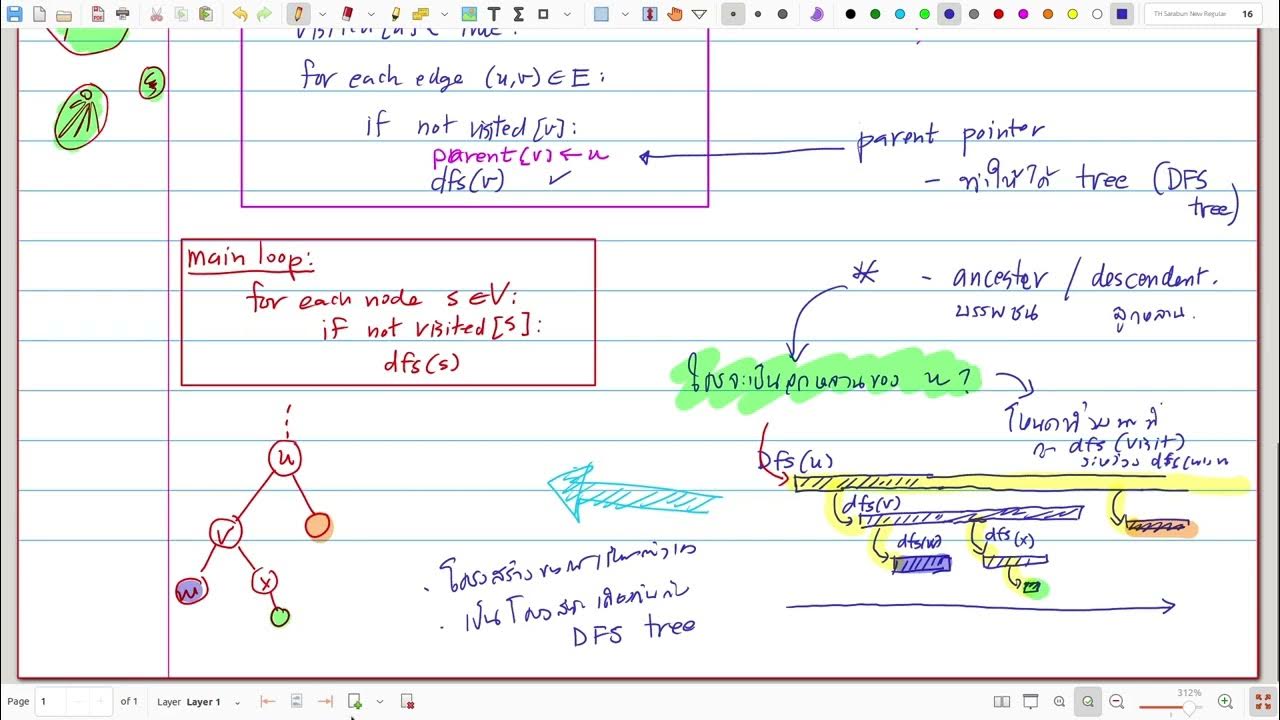 TH Sarabun New Regular 16
for each edge (u,v) ∈ E:
if not visited [v]:
parent(v) ← u
dfs(v) ✓
parent pointer
- ทำให้ได้ tree (DFS
tree)
main loop:
for each node s ∈ V:
if not visited [s]:
dfs(s)
* - ancester / descendent.
บรรพชน ลูกหลาน.
ใครจะเป็นลูกหลานของ u?
dfs (visit)
DFS(u)
dfs(v)
dfs(w)
dfs(x)
u
v
w
x
เป็นโครงสร้างเดียวกันกับ
DFS tree
Page 1 of 1 Layer Layer 1 312%